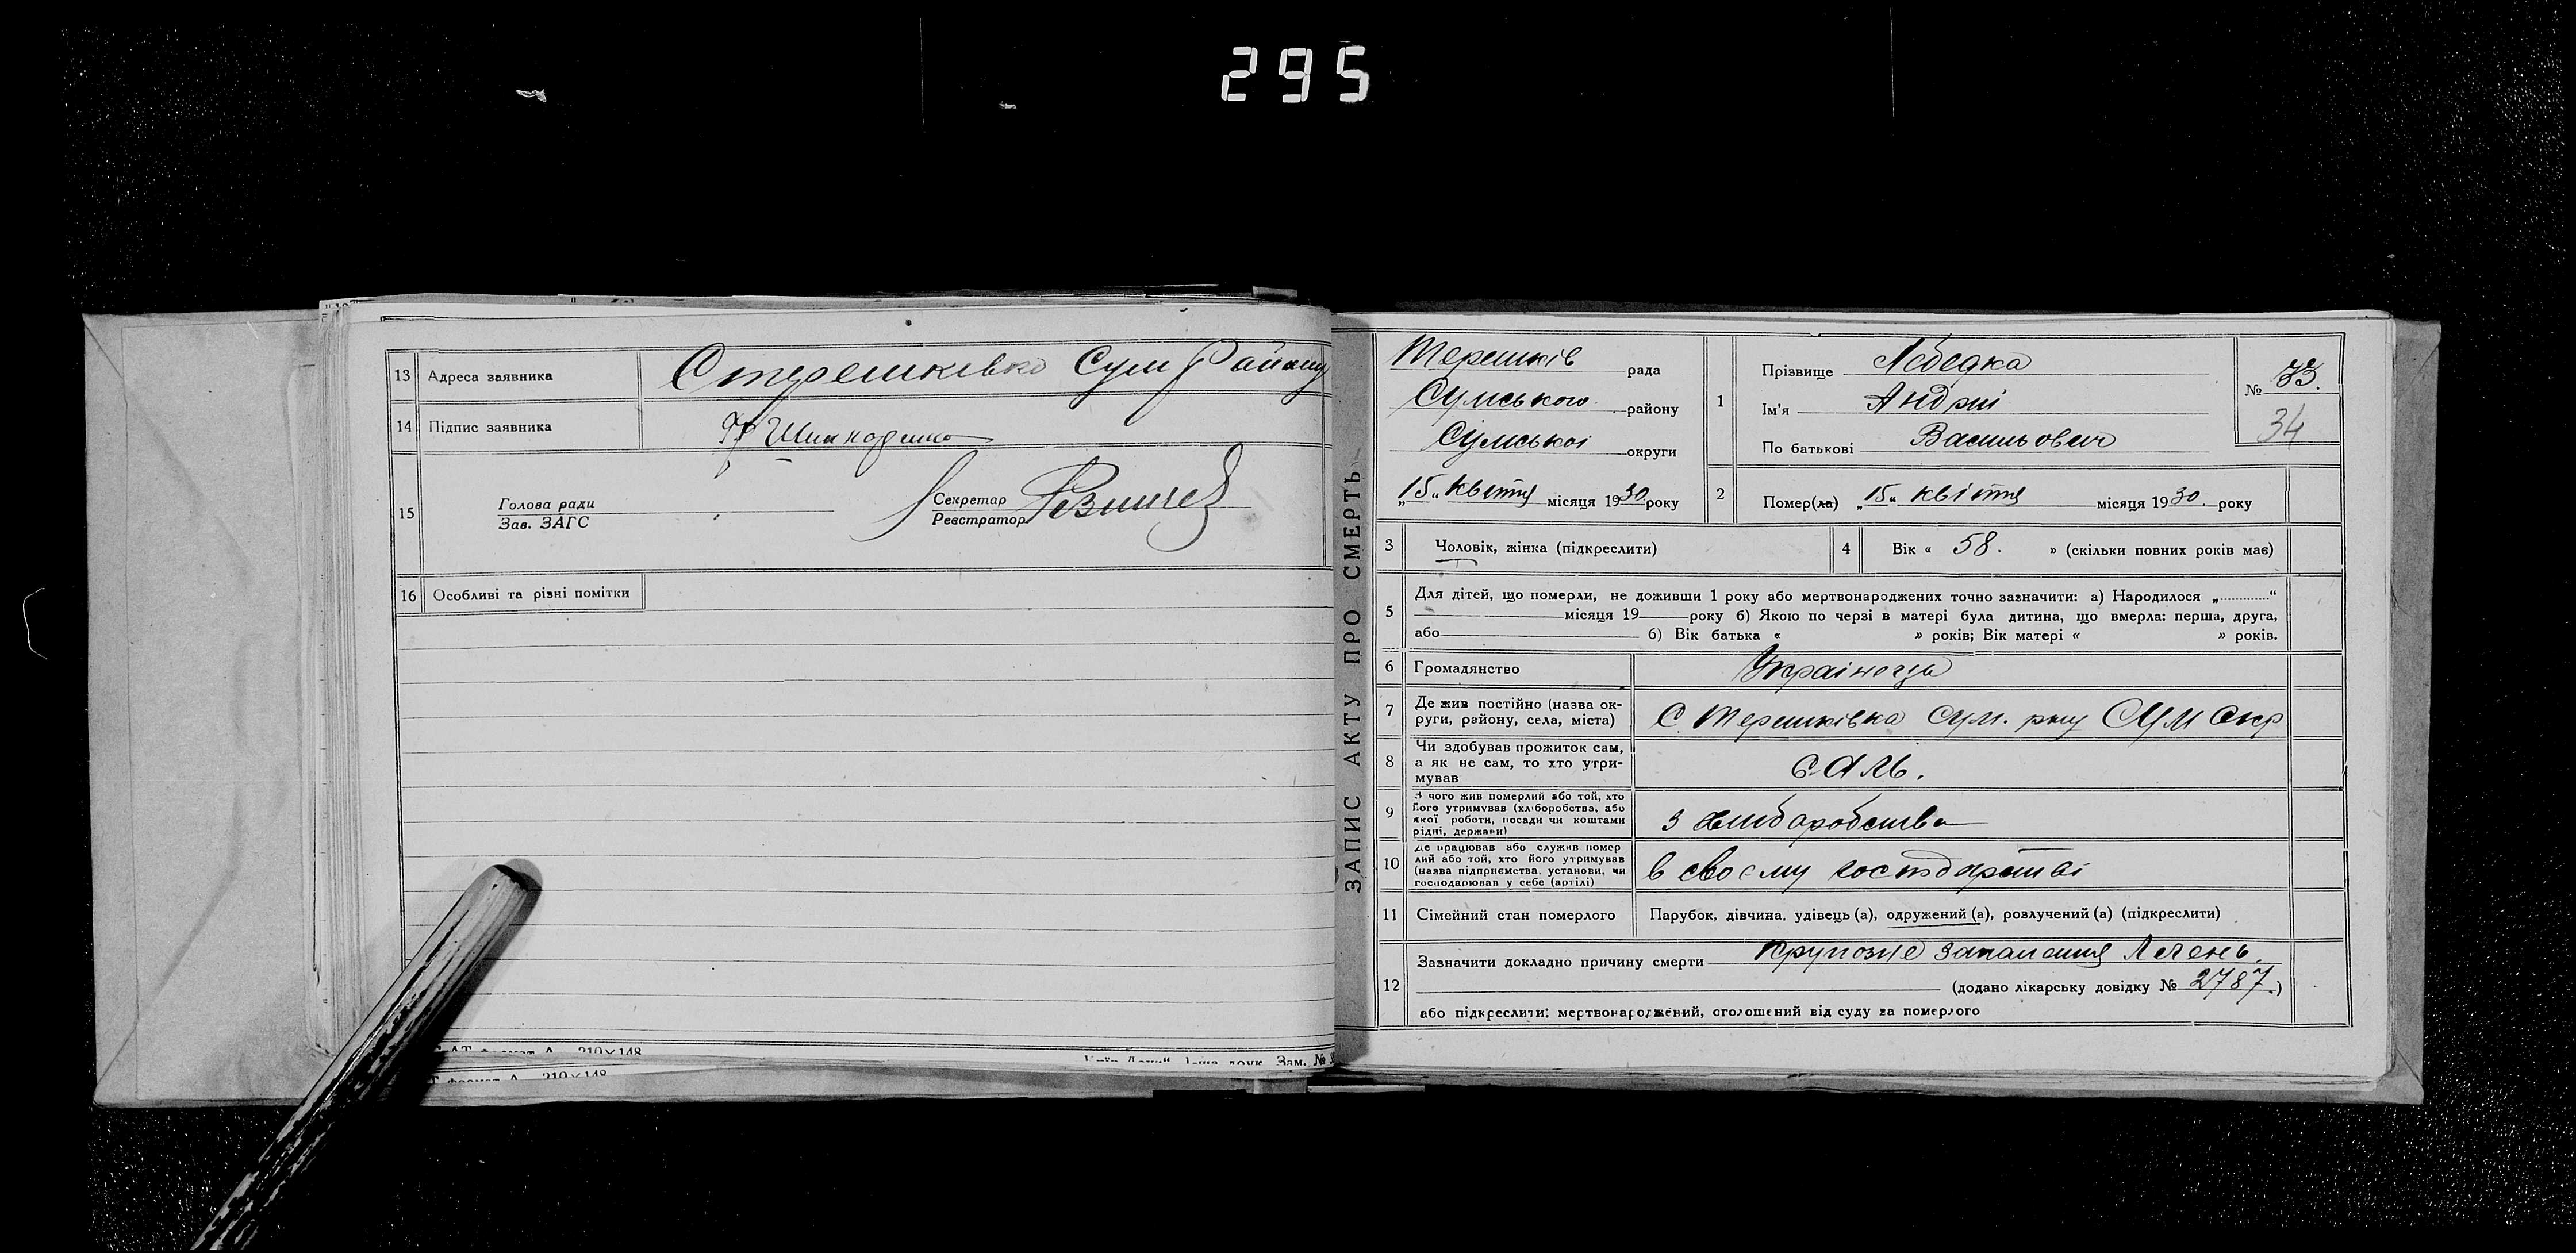 295
13 Адреса заявника С терешківка Сум Району
14 Підпис заявника
15 Голова ради
Зав. ЗАГС
Секретар
Реєстратор
16 Особливі та різні помітки
ЗАПИС АКТУ ПРО СМЕРТЬ
Терешків рада
Сумського району
Сумської округи
„15“ квітня місяця 1930 року
1 Прізвище Лебедка
Ім'я Андрій
По батькові Васильович
№ 33.
34
2 Помер(ла) „15“ квітня місяця 1930. року
3 Чоловік, жінка (підкреслити)
4 Вік « 58. » (скільки повних років має)
5 Для дітей, що померли, не доживши 1 року або мертвонароджених точно зазначити: а) Народилося „............“
місяця 19 року б) Якою по черзі в матері була дитина, що вмерла: перша, друга,
або б) Вік батька « » років; Вік матері « » років.
6 Громадянство Україноць
7 Де жив постійно (назва ок-
руги, району, села, міста) С. Терешківка Сум. р-ну Сум Окр
8 Чи здобував прожиток сам,
а як не сам, то хто утри-
мував сам.
9 З чого жив померлий або той, хто
його утримував (хліборобства, або
якої роботи, посади чи коштами
рідні, держави) з хліборобства
10 Де працював або служив помер
лий або той, хто його утримував
(назва підприємства, установи, чи
господарював у себе (артілі) в своєму господарстві
11 Сімейний стан померлого Парубок, дівчина, удівець (а), одружений (а), розлучений (а) (підкреслити)
12 Зазначити докладно причину смерти Крупозне запалення Легень.
(додано лікарську довідку № 2787.)
або підкреслити: мертвонароджений, оголошений від суду за померлого
210×148
Зам. №
210×148